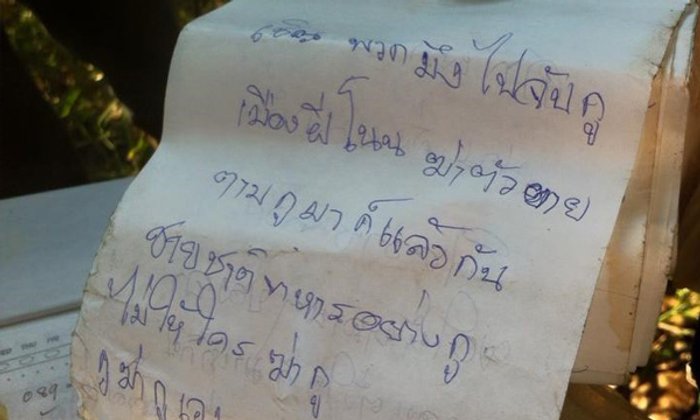 เชิญ พวกมึงไปจับกู
เมืองผีโน่น ฆ่าตัวตาย
ตามกูมาก็แล้วกัน
ชายชาติทหารอย่างกู
ไม่ให้ใครฆ่ากู
089